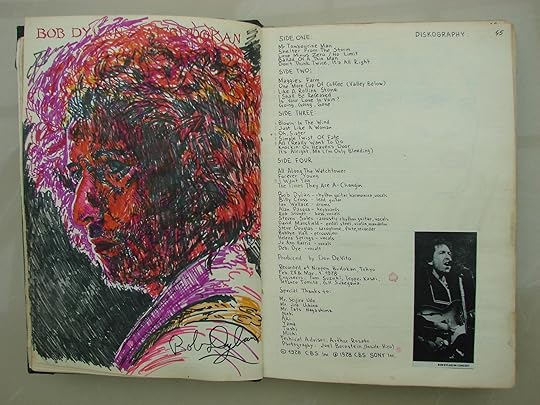 BOB DYLAN AT BUDOKAN
Bob Dylan
DISKOGRAPHY
65
SIDE ONE:
Mr Tambourine Man
Shelter From The Storm
Love Minus Zero / No Limit
Ballad Of A Thin Man
Don't Think Twice, It's All Right
SIDE TWO:
Maggies Farm
One More Cup Of Coffee (Valley Below)
Like A Rolling Stone
I Shall Be Released
Is Your Love In Vain?
Going, Going, Gone
SIDE THREE
Blowin In The Wind
Just Like A Woman
Oh, Sister
Simple Twist Of Fate
All I Really Want To Do
Knockin On Heaven's Door
It's Alright Ma (I'm Only Bleeding)
SIDE FOUR
All Along The Watchtower
Forever Young
I Want You
The Times They Are A-Changin
Bob Dylan - rhythm guitar, harmonica, vocals
Billy Cross - lead guitar
Ian Wallace - drums
Alan Pasqua - keyboards
Rob Stoner - bass, vocals
Steven Soles - acoustic rhythm guitar, vocals
David Mansfield - pedal steel, violin, mandolin
Steve Douglas - saxophone, flute, recorder
Bobbye Hall - percussion
Helena Springs - vocals
Jo Ann Harris - vocals
Debi Dye - vocals
Produced by Don DeVito
Recorded at Nippon Budokan, Tokyo
Feb 28 & Mar. 1, 1978
Engineers: Tom Suzuki, Teppei Kasai,
Tetsuro Tomita,
Special Thanks to:
Mr. Seijiro Udo
Mr.
Mr. Tats Nagashima
Aki
Technical Advisor: Arthur Rosato
Photography: Joel Bernstein
© 1978 CBS Inc. ℗ 1978 CBS SONY Inc.
BOB DYLAN IN CONCERT